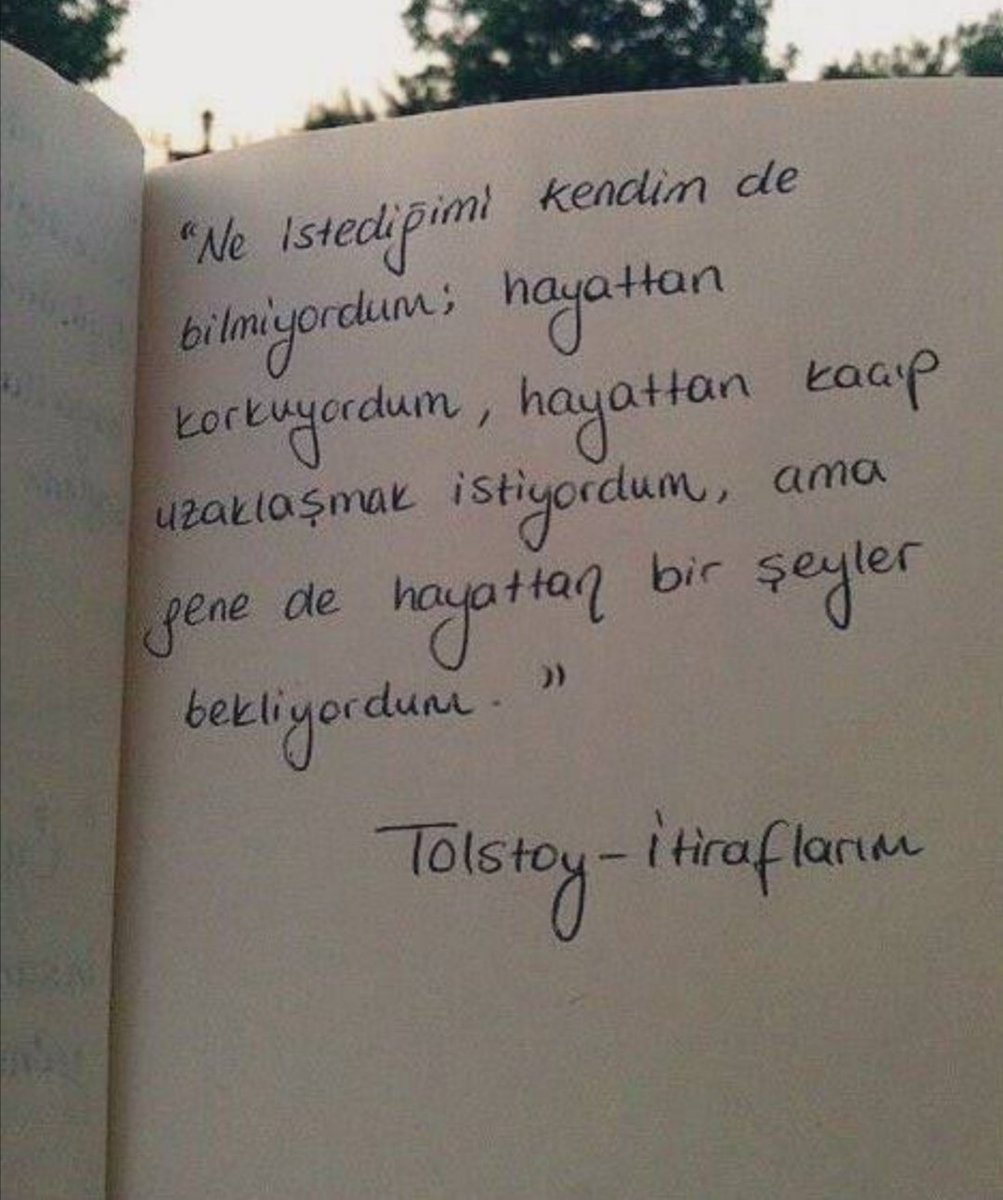 “Ne istediğimi kendim de
bilmiyordum; hayattan
korkuyordum, hayattan kaçıp
uzaklaşmak istiyordum, ama
gene de hayattan bir şeyler
bekliyordum. ”
Tolstoy - İtiraflarım